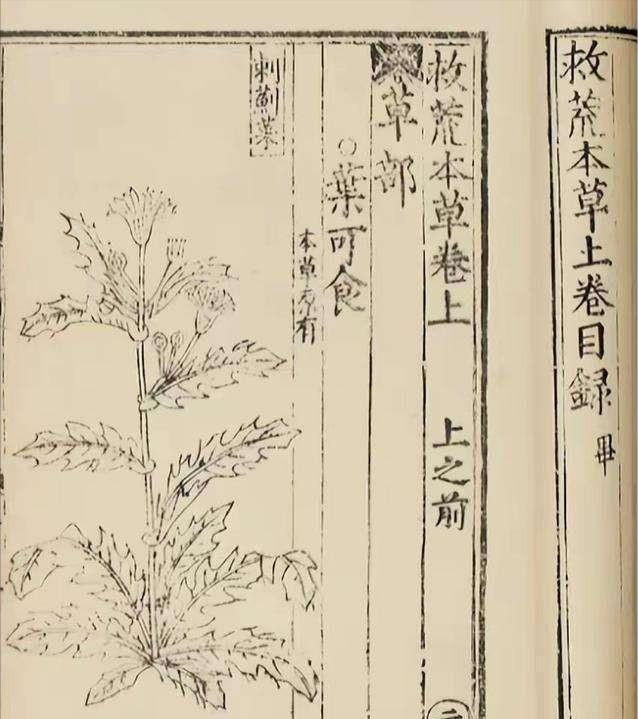 救荒本草上卷目録 畢
救荒本草卷上 上之前
草部
○葉可食
本草原有
刺薊菜
二